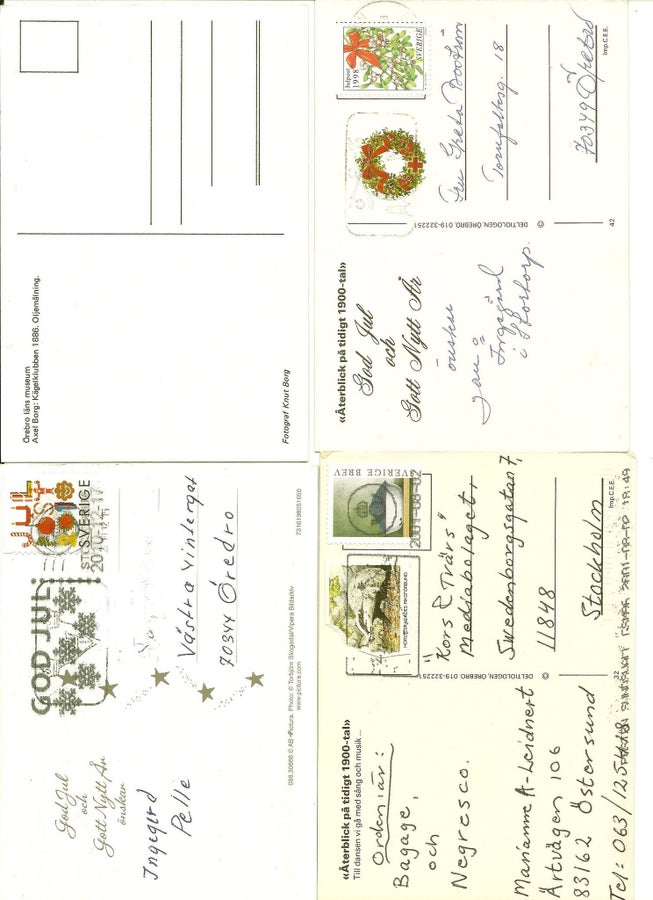 Örebro läns museum
Axel Borg: Kägelklubben 1886. Oljemålning.
Fotograf Knut Borg
Julpost
1998
SVERIGE
Fru Greta Boström
Tornfalksg. 18
70349 Örebro
Imp.C.E.E.
DELTIOLOGEN, ÖREBRO, 019-322251
42
«Återblick på tidigt 1900-tal»
God Jul
och
Gott Nytt År
önskar
Jan o
Ingegerd
i Stortorp.
SVERIGE
GOD JUL
Västra Vintergat
70344 Örebro
7316198051650
089.30666 © AB •Pictura. Photo: © Torbjörn Skogedal/Vipera Bildarkiv
www.pictura.com
God Jul
och
Gott Nytt År
önskar
Ingegerd
Pelle
SVERIGE BREV
"Kors & Tvärs"
Mediabolaget,
Swedenborgsgatan 7,
11848
Stockholm
Imp.C.E.E.
DELTIOLOGEN, ÖREBRO, 019-322251
32
«Återblick på tidigt 1900-tal»
Till dansen vi gå med sång och musik –
Orden är:
Bagage,
och
Negresco.
Marianne A-Leidnert
Ärtvägen 106
83162 Östersund
Tel: 063/125418